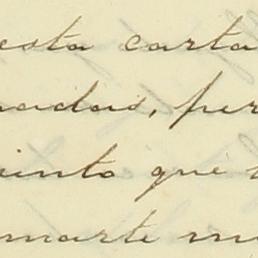 esta carta
nadas, per
iento que
marte m